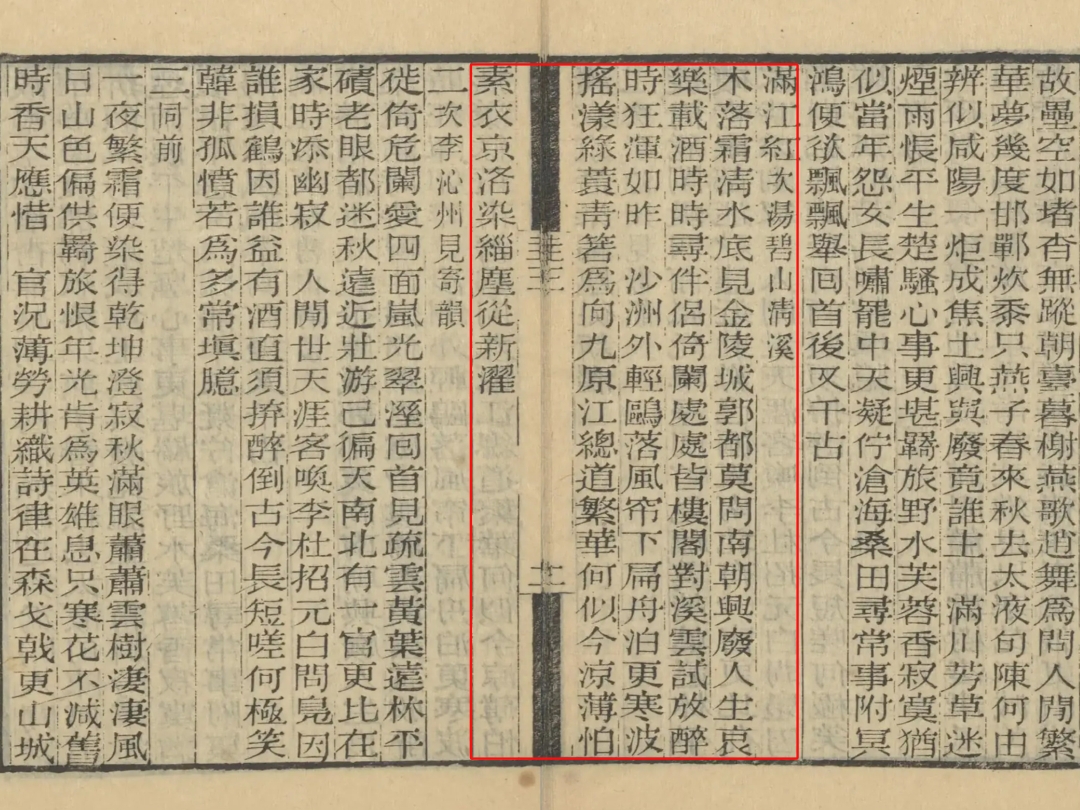 故壘空如堵杳無蹤朝臺暮榭燕歌趙舞爲問人閒繁
華夢幾度邯鄲炊黍只燕子春來秋去太液句陳何由
辨似咸陽一炬成焦土興與廢竟誰主　滿川芳草迷
煙雨悵平生楚騷心事更堪羇旅野水芙蓉香寂寞猶
似當年怨女長嘯罷中天凝佇滄海桑田尋常事附冥
鴻便欲飄飄舉回首後又千古
滿江紅次湯碧山淸溪
木落霜淸水底見金陵城郭都莫問南朝興廢人生哀
樂載酒時時尋伴侶倚闌處處皆樓閣對溪雲試放醉
時狂渾如昨　沙洲外輕鷗落風帘下扁舟泊更寒波
搖漾綠蓑靑箬爲問九原江總道繁華何似今涼薄怕
二
素衣京洛染緇塵從新濯
二次李沁州見寄韻
徙倚危闌愛四面嵐光翠溼回首見疏雲黃葉遠林平
磧老眼都迷秋遠近壯游已徧天南北有一官更比在
家時添幽寂　人閒世天涯客喚李杜招元白問鳧因
誰損鶴因誰益有酒直須拚醉倒古今長短嗟何極笑
韓非孤憤若爲多常塡臆
三同前
一夜繁霜便染得乾坤澄寂秋滿眼蕭蕭雲樹淒淒風
日山色偏供羇旅恨年光肯爲英雄息只寒花不減舊
時香天應惜　官況薄勞耕織詩律在森戈戟更山城